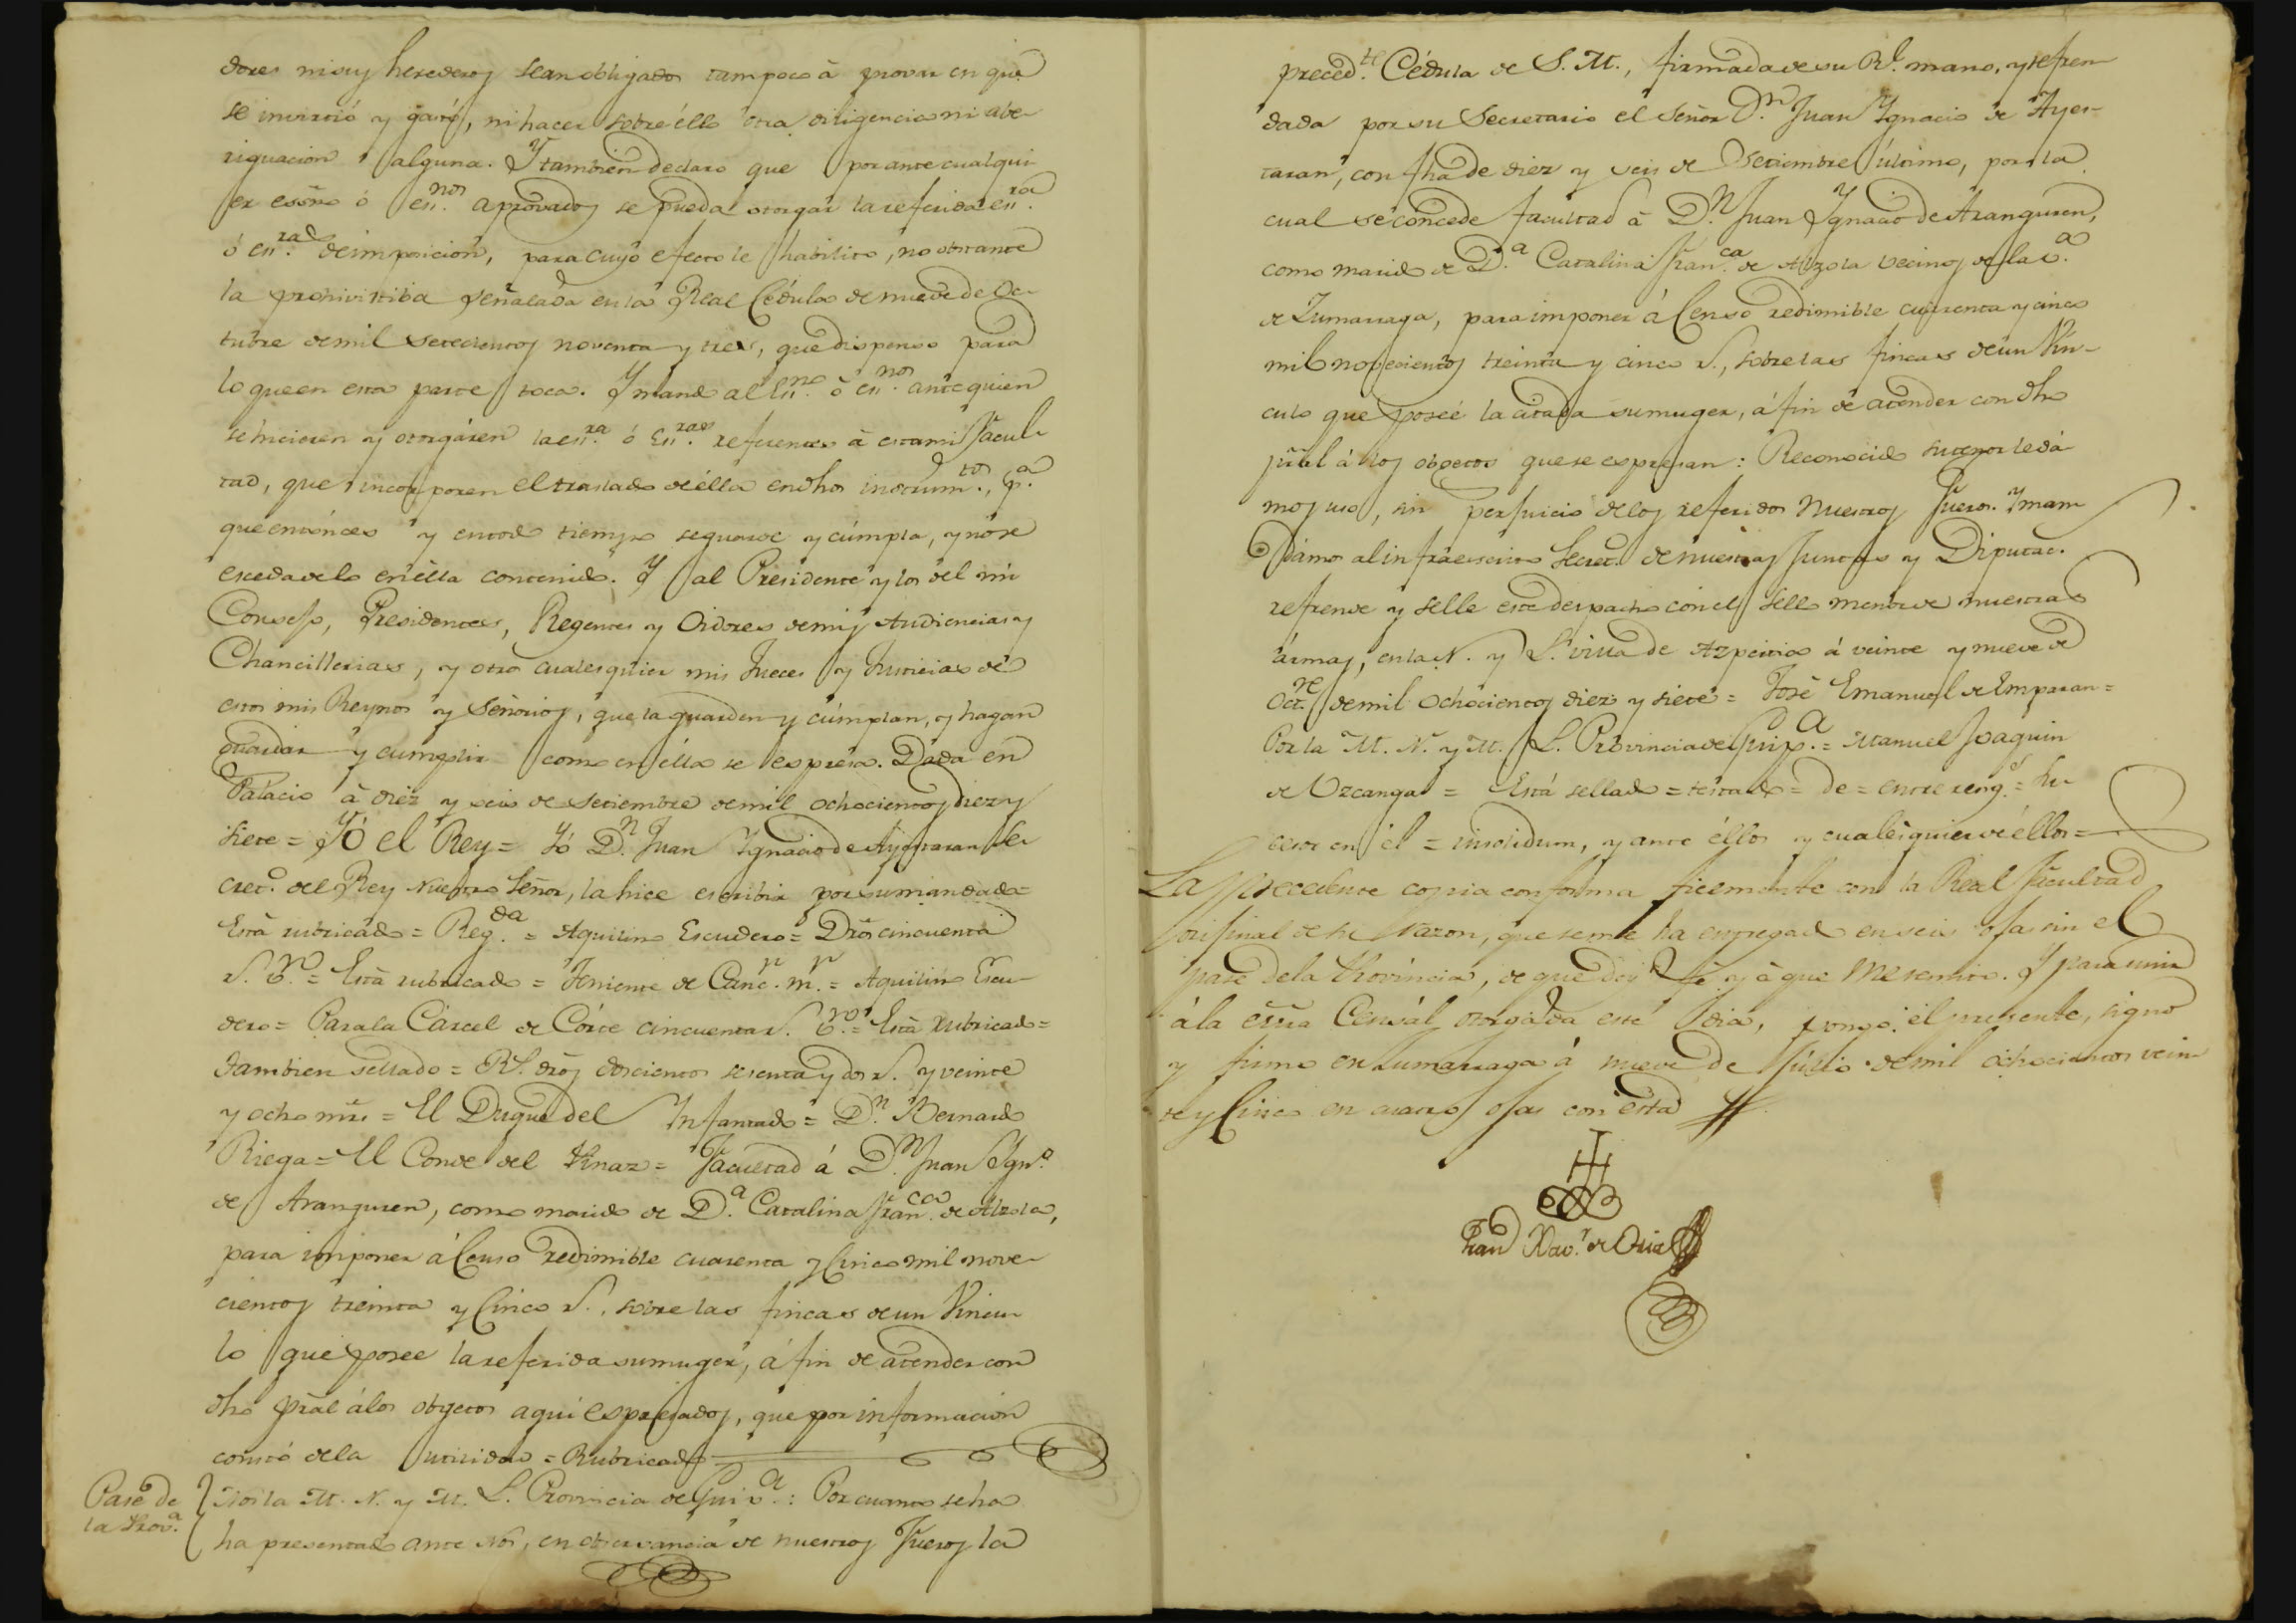 dores ni sus herederos sean obligados tampoco à provar en que
se invirtió y gastó, ni hacer sobre éllo otra diligencia ni ave-
riguacion alguna. Y tambien declaro que por ante cualqui-
er essno ó en.nos aprovados se pueda otorgar la referida en.ra
ó en.ras de imposicion, para cuyo efecto le habilito, no obstante
la prohivitiba señalada en la Real Cédula de nueve de Oc-
tubre de mil setecientos noventa y tres, que dispenso para
lo que en esta parte toca. Y mando al En.no ó en.nos ante quien
se hicieren y otorgáren la en.ra ó En.ras referentes à esta mi Facul-
tad, que incorporen el traslado de élla en dhos instrum.tos, p.a
que entónces y en todo tiempo se guarde y cúmpla, y nó se
esceda de lo en élla contenido. Y al Presidente y los del mi
Consejo, Presidentes, Regentes y Oidores de mis Audiencias y
Chancillerias, y otros cualesquier mis Jueces y Justicias de
estos mis Reynos y Señorios, que la guarden y cúmplan, y hagan
guardar y cumplir como en élla se espresa. Dada en
Palacio à diez y seis de Setiembre de mil ochocientos diez y
siete = Yó el Rey = Yó D.n Juan Ignacio de Ayestaran Se-
cret.o del Rey Nuestro Señor, la hice escribir por su mandado =
Está rubricado = Reg.da = Aquilino Escudero = Dros cincuenta
r.s v.n = Está rubricado = Teniente de Canc.r m.r = Aquilino Escu-
dero = Para la Cárcel de Córte cincuenta r.s v.n = Está rubricado =
Tambien sellado = R.s dros doscientos sesenta y dos r.s y veinte
y ocho mrs = El Duque del Infantado = D.n Bernardo
Riega = El Conde del Pinar = Facultad á D.n Juan Ign.o
de Aranguren, como marido de D.a Catalina Fran.ca de Alzola,
para imponer á Censo redimible cuarenta y Cinco mil nove-
cientos treinta y Cinco r.s, sobre las fincas de un Vincu-
lo que posee la referida su muger, á fin de atender con
dho pral á los obgetos aqui espresados, que por informacion
constó de la utilidad = Rubricado
Pase de
la Prov.a
Nos la M. N. y M. L. Provincia de Guip.a: Por cuanto se ha
ha presentado ante Nos, en observancia de nuestros Fueros la
preced.te Cédula de S. M., firmada de su R.l mano, y refren-
dada por su Secretario el Señor D.n Juan Ygnacio de Ayes-
taran, con fha de diez y seis de Setiembre último, por la
cual se concede facultad à D.n Juan Ygnacio de Aranguren,
como marido de D.a Catalina Fran.ca de Alzola vecinos de la v.a
de Zumarraga, para imponer á Censo redimible cuarenta y cinco
mil novecientos treinta y cinco r.s, sobre las fincas de un Vín-
culo que poseé la citada su muger, á fin de atender con dho
pral á los obgetos que se espresan: Reconocido su tenor le dá-
mos uso, sin perjuicio de los referidos Nuestros Fueros. Y man-
dámos al infraescrito Secret.o de nuestras Juntas y Diputac.s
refrende y selle este despacho con el sello menor de nuestras
ármas, en la N. y L. villa de Azpeitia á veinte y nueve de
Oct.re de mil ochocientos diez y siete = José Emanuel de Emparan =
Por la M. N. y M. L. Provincia de Guip.a = Manuel Joaquin
de Uzcanga = Está sellado = testado = de = entre reng.s = su-
cesor en él = insolidum, y ante éllos y cualesquier de éllos =
La precedente copia conforma fielmente con la Real Facultad
original de su razon, que se me ha entregado en seis ojas sin el
pase de la Provincia, de que doy fé, y á que me remito. Y para unir
á la essra Censál otorgada este dia, pongo el presente, signo
y firmo en Zumarraga á nueve de Julio de mil ochocientos vein-
te y Cinco en cuatro ojas con esta
Fran.co Xav.r de Oria